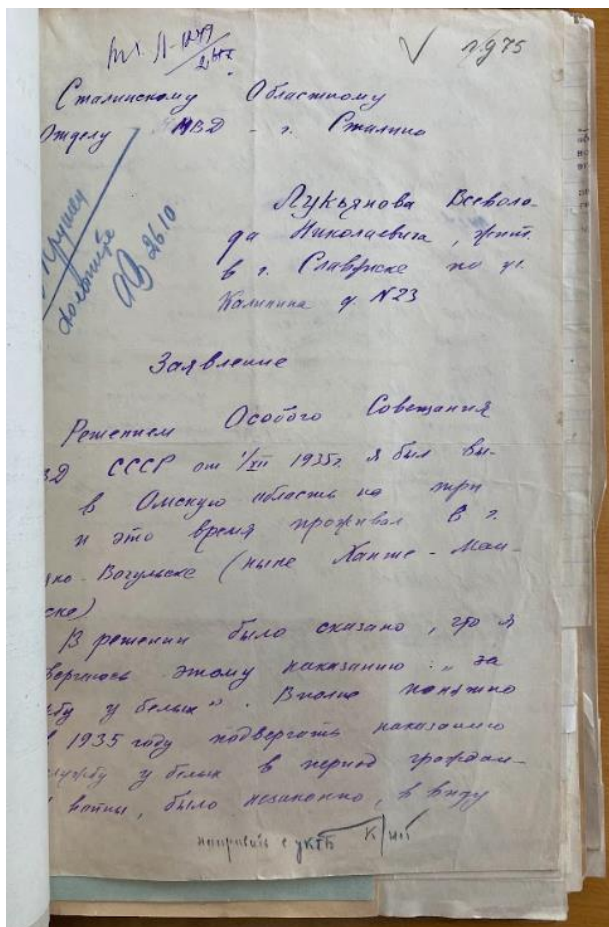 п.д 75
Сталинскому Областному
Отделу МВД - г. Сталино
26 10
Лукьянова Всеволо-
да Николаевича, жит.
в г. Славянске по ул.
Калинина д. N23
Заявление
Решением Особого Совещания
ВД СССР от 1/XII 1935г. я был вы-
в Омскую область на три
и это время проживал в г.
яко-Вогульске (ныне Ханты-Ман-
ске)
В решении было сказано, что я
вергаюсь этому наказанию: „за
жбу у белых". Вполне понятно
в 1935 году подвергать наказанию
службу у белых в период граждан-
й войны, было незаконно, в виду
направить с УКГБ